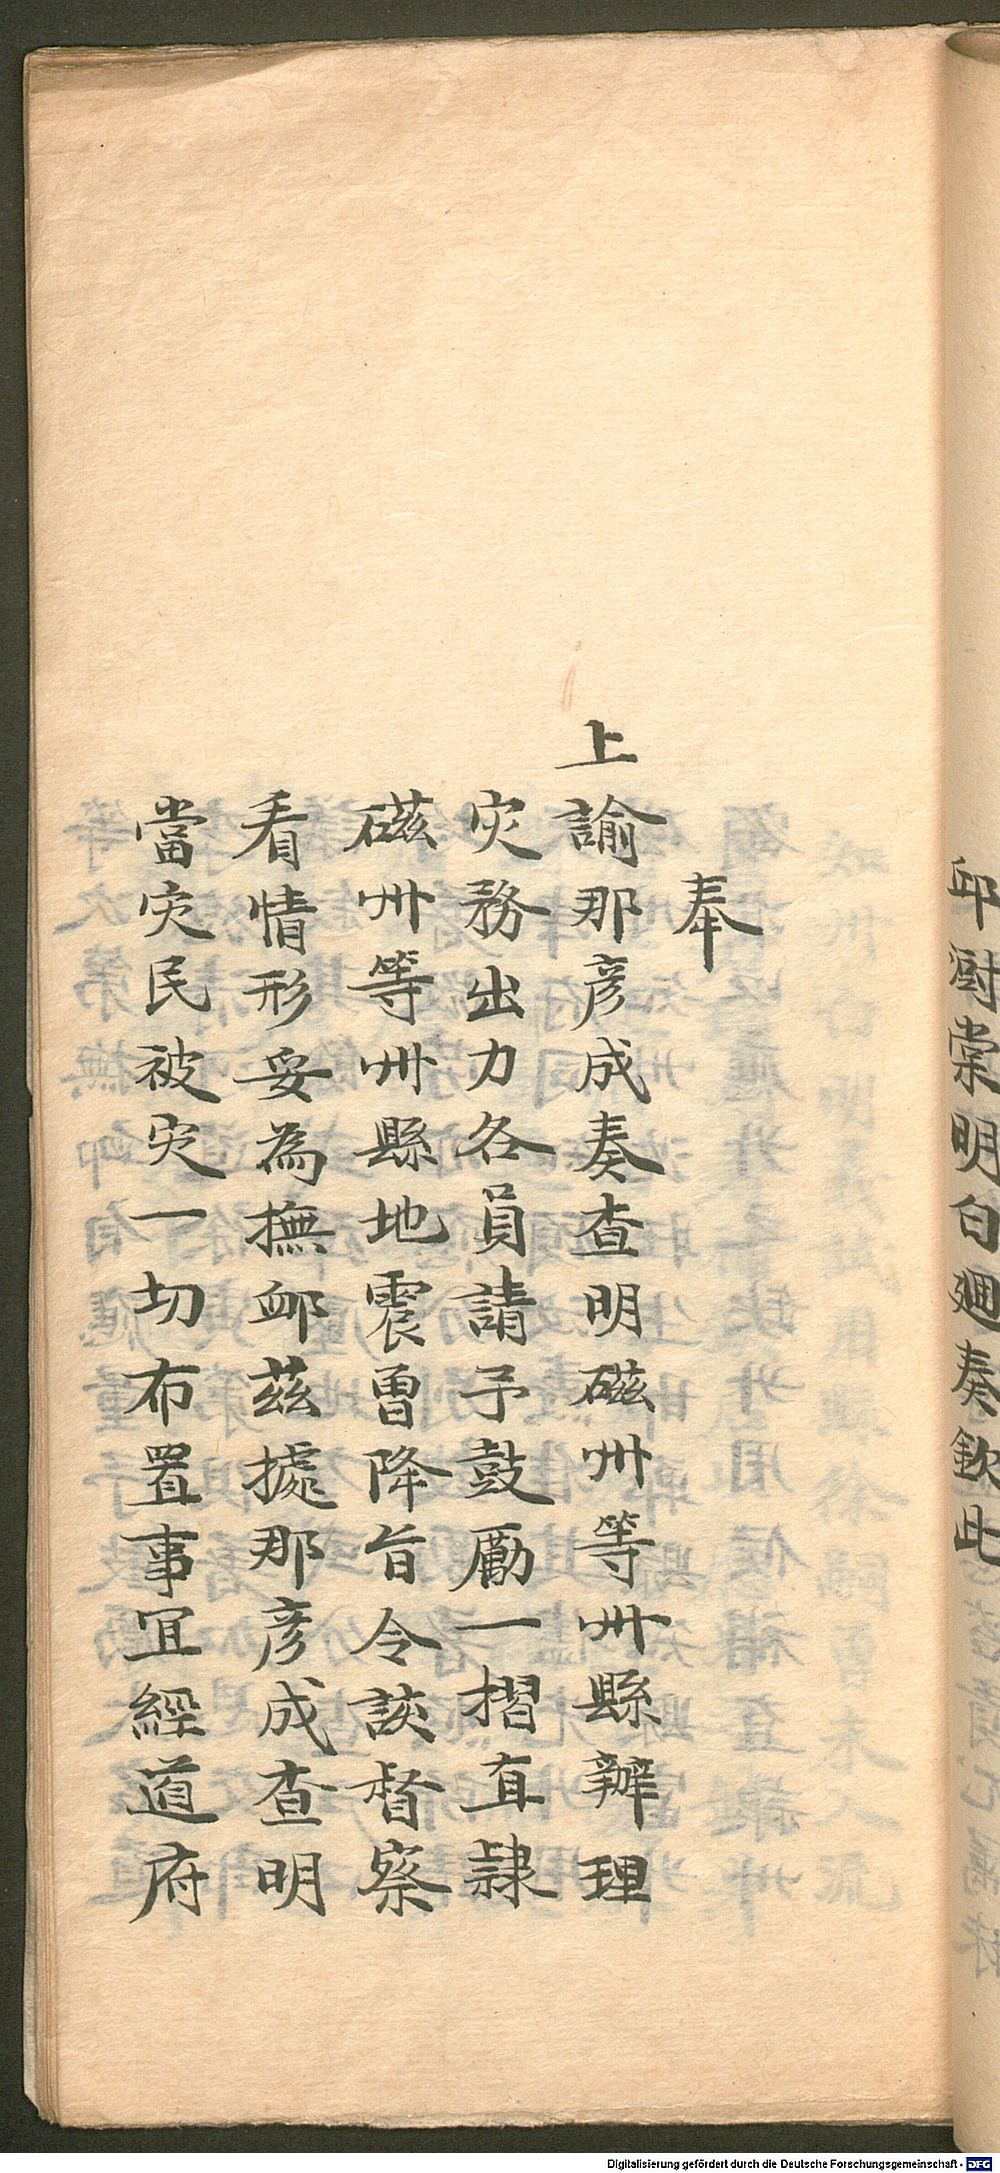 邱澍棠明白廻奏欽此
奉
上諭那彦成奏查明磁州等州縣辦理
灾務出力各員請予鼓勵一摺直隷
磁州等州縣地震曾降旨令該督察
看情形妥為撫卹茲據那彦成查明
當灾民被灾一切布置事宜經道府
Digitalisierung gefördert durch die Deutsche Forschungsgemeinschaft - DFG